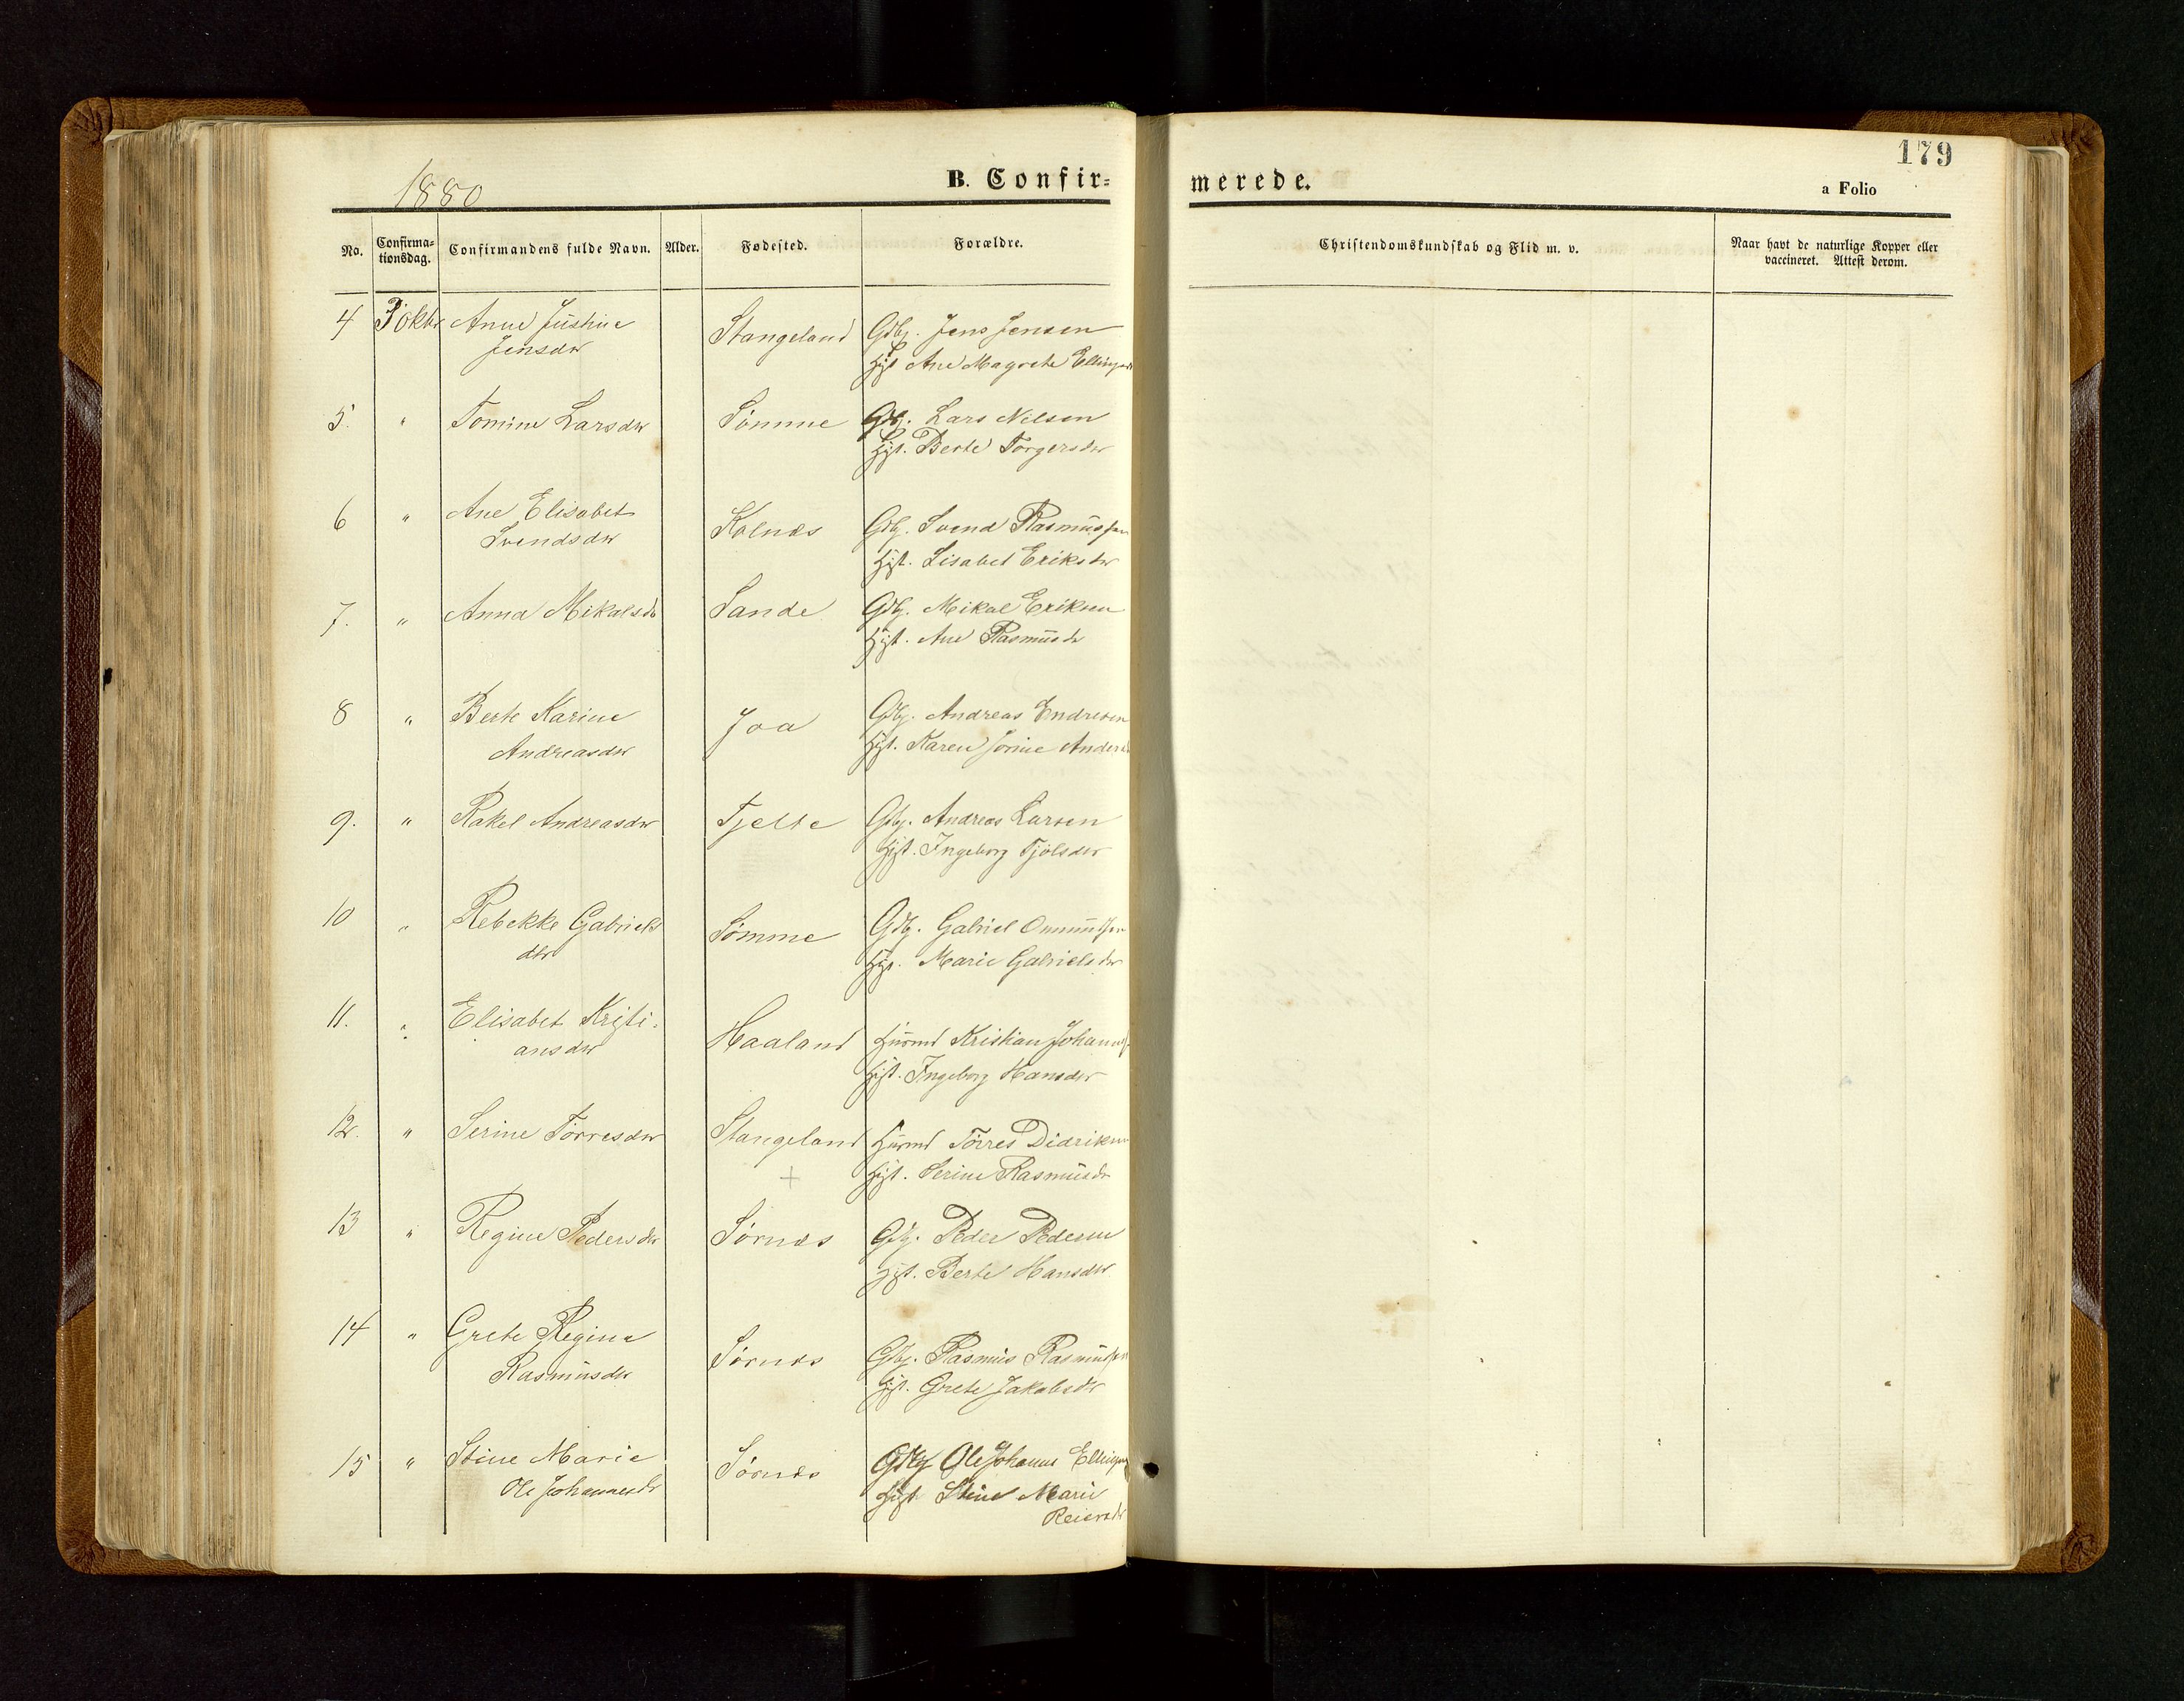 1880
B. Confir=
merede.
179
a Folio
No.
Confirma=
tionsdag.
Confirmandens fulde Navn.
Alder.
Fødested.
Forældre.
Christendomskundskab og Flid m. v.
Naar havt de naturlige Kopper eller
vaccineret. Attest derom.
4 3 oktbr Anne Justine Stangeland Gdbg. Jens Jensen
Jensdtr Hgst Ane Magrete Ellingsdtr
5. " Tomine Larsdtr Sömme Gdbg. Lars Nilsen
Hgst. Berte Torgersdtr
6 " Ane Elisabet Kolnæs Gdbg. Svend Rasmussen
Svendsdtr Hgst. Lisabet Eriksdtr
7. " Anna Mikalsdtr Sande Gdbg. Mikal Eriksen
Hgst. Ane Rasmusdtr
8 " Berte Karine Joa Gdbg. Andreas Endresen
Andreasdtr Hgst. Karen Jorine Andersd
9. " Rakel Andreasdtr Tjelte Gdbg. Andreas Larsen
Hgst. Ingeborg Tjölsdtr
10 " Rebekke Gabriels Sömme Gdbg. Gabriel Ommundsen
dtr Hgst. Marie Gabrielsdtr
11. " Elisabet Kristi- Haaland Husmd Kristian Johanns
ansdtr Hgst. Ingeborg Hansdtr
12. " Serine Törresdtr Stangeland Husmd Törres Didriksen
+ Hgst. Serine Rasmusdtr
13 " Regine Pedersdtr Sörnæs Gdbg. Peder Pedersen
Hgst. Berte Hansdtr
14 " Grete Regina Sörnæs Gdbg. Rasmus Rasmussen
Rasmusdtr Hgst. Grete Jakobsdtr
15 " Stine Marie Sörnæs Gdbg Ole Johannes Ellingsen
Ole Johannesdtr Hgst Stine Marie
Reiersdtr